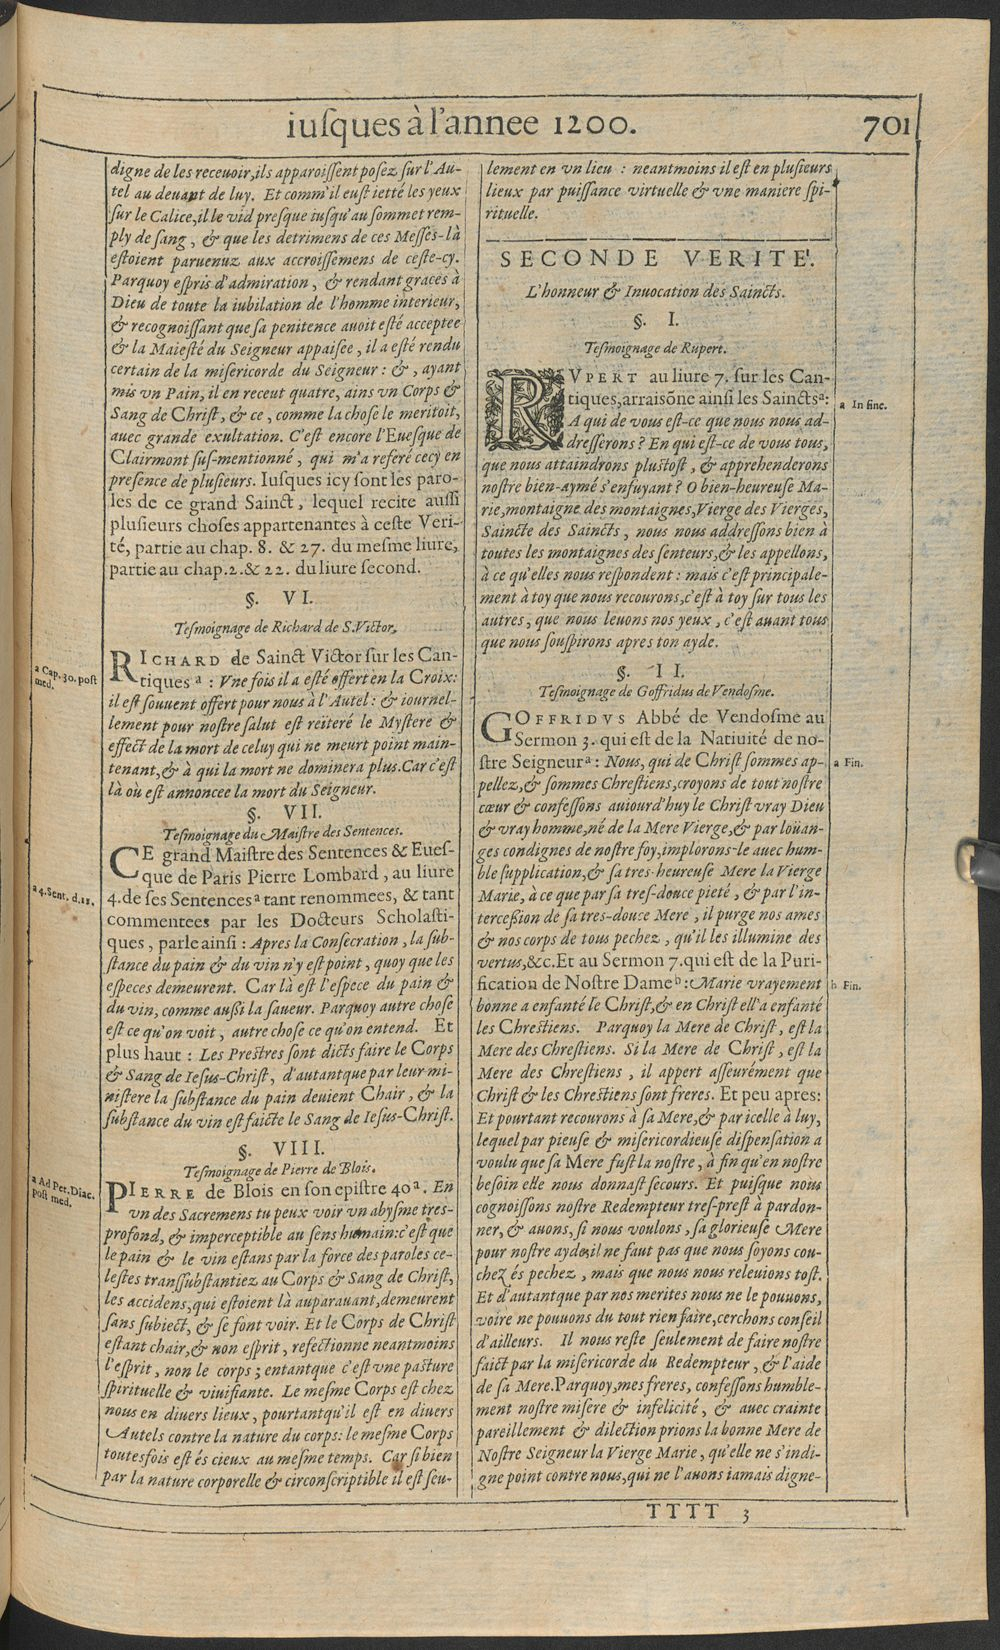 iuſques à l'annee 1200.
701
digne de les receuoir, ils apparoiſſent poſez ſur l'Au-
tel au deuant de luy. Et comm'il euſt ietté les yeux
ſur le Calice, il le vid preſque iuſqu'au ſommet rem-
ply de ſang, & que les detrimens de ces Meſſes-là
eſtoient paruenuz aux accroiſſemens de ceſte-cy.
Parquoy eſpris d'admiration, & rendant graces à
Dieu de toute la iubilation de l'homme interieur,
& recognoiſſant que ſa penitence auoit eſté acceptee
& la Maieſté du Seigneur appaiſee, il a eſté rendu
certain de la miſericorde du Seigneur: &, ayant
mis vn Pain, il en receut quatre, ains vn Corps &
Sang de Chriſt, & ce, comme la choſe le meritoit,
auec grande exultation. C'eſt encore l'Eueſque de
Clairmont ſus-mentionné, qui m'a referé cecy en
preſence de pluſieurs. Iuſques icy ſont les paro-
les de ce grand Sainct, lequel recite auſſi
pluſieurs choſes appartenantes à ceſte Veri-
té, partie au chap. 8. & 27. du meſme liure,
partie au chap. 2. & 22. du liure ſecond.
§. VI.
Teſmoignage de Richard de S. Victor.
a Cap. 30. poſt
med.
RICHARD de Sainct Victor ſur les Can-
tiques a : Vne fois il a eſté offert en la Croix:
il eſt ſouuent offert pour nous à l'Autel: & iournel-
lement pour noſtre ſalut eſt reiteré le Myſtere &
effect de la mort de celuy qui ne meurt point main-
tenant, & à qui la mort ne dominera plus. Car c'eſt
là où eſt annoncee la mort du Seigneur.
§. VII.
Teſmoignage du Maiſtre des Sentences.
a 4. Sent. d. 11.
CE grand Maiſtre des Sentences & Eueſ-
que de Paris Pierre Lombard, au liure
4. de ſes Sentences a tant renommees, & tant
commentees par les Docteurs Scholaſti-
ques, parle ainſi: Apres la Conſecration, la ſub-
ſtance du pain & du vin n'y eſt point, quoy que les
eſpeces demeurent. Car là eſt l'eſpece du pain &
du vin, comme auſſi la ſaueur. Parquoy autre choſe
eſt ce qu'on voit, autre choſe ce qu'on entend. Et
plus haut: Les Preſtres ſont dicts faire le Corps
& Sang de Ieſus-Chriſt, d'autant que par leur mi-
niſtere la ſubſtance du pain deuient Chair, & la
ſubſtance du vin eſt faicte le Sang de Ieſus-Chriſt.
§. VIII.
Teſmoignage de Pierre de Blois.
a Ad Pet. Diac.
poſt med.
PIERRE de Blois en ſon epiſtre 40 a. En
vn des Sacremens tu peux voir vn abyſme tres-
profond, & imperceptible au ſens humain: c'eſt que
le pain & le vin eſtans par la force des paroles ce-
leſtes tranſſubſtantiez au Corps & Sang de Chriſt,
les accidens, qui eſtoient là auparauant, demeurent
ſans ſubiect, & ſe font voir. Et le Corps de Chriſt
eſtant chair, & non eſprit, refectionne neantmoins
l'eſprit, non le corps; entant que c'eſt vne paſture
ſpirituelle & viuifiante. Le meſme Corps eſt chez
nous en diuers lieux, pourtant qu'il eſt en diuers
Autels contre la nature du corps: le meſme Corps
toutesfois eſt és cieux au meſme temps. Car ſi bien
par la nature corporelle & circonſcriptible il eſt ſeu-
lement en vn lieu: neantmoins il eſt en pluſieurs
lieux par puiſſance virtuelle & vne maniere ſpi-
rituelle.
SECONDE VERITE'.
L'honneur & Inuocation des Saincts.
§. I.
Teſmoignage de Rupert.
RVPERT au liure 7. ſur les Can-
tiques, arraisõne ainſi les Saincts a:
a In fine.
A qui de vous eſt-ce que nous nous ad-
dreſſerons? En qui eſt-ce de vous tous,
que nous attaindrons pluſtoſt, & apprehenderons
noſtre bien-aymé s'enfuyant? O bien-heureuſe Ma-
rie, montaigne des montaignes, Vierge des Vierges,
Saincte des Saincts, nous nous addreſſons bien à
toutes les montaignes des ſenteurs, & les appellons,
à ce qu'elles nous reſpondent: mais c'eſt principale-
ment à toy que nous recourons, c'eſt à toy ſur tous les
autres, que nous leuons nos yeux, c'eſt auant tous
que nous ſouſpirons apres ton ayde.
§. II.
Teſmoignage de Goffridus de Vendoſme.
GOFFRIDVS Abbé de Vendoſme au
Sermon 3. qui eſt de la Natiuité de no-
ſtre Seigneur a: Nous, qui de Chriſt ſommes ap-
a Fin.
pellez, & ſommes Chreſtiens, croyons de tout noſtre
cœur & confeſſons auiourd'huy le Chriſt vray Dieu
& vray homme, né de la Mere Vierge, & par loüan-
ges condignes de noſtre foy, implorons-le auec hum-
ble ſupplication, & ſa tres-heureuſe Mere la Vierge
Marie, à ce que par ſa treſ-douce pieté, & par l'in-
terceſſion de ſa tres-douce Mere, il purge nos ames
& nos corps de tous pechez, qu'il les illumine des
vertus, &c. Et au Sermon 7. qui eſt de la Puri-
fication de Noſtre Dame b: Marie vrayement
b Fin.
bonne a enfanté le Chriſt, & en Chriſt ell'a enfanté
les Chreſtiens. Parquoy la Mere de Chriſt, eſt la
Mere des Chreſtiens. Si la Mere de Chriſt, eſt la
Mere des Chreſtiens, il appert aſſeurément que
Chriſt & les Chreſtiens ſont freres. Et peu apres:
Et pourtant recourons à ſa Mere, & par icelle à luy,
lequel par pieuſe & miſericordieuſe diſpenſation a
voulu que ſa Mere fuſt la noſtre, à fin qu'en noſtre
beſoin elle nous donnaſt ſecours. Et puiſque nous
cognoiſſons noſtre Redempteur treſ-preſt à pardon-
ner, & auons, ſi nous voulons, ſa glorieuſe Mere
pour noſtre ayde, il ne faut pas que nous ſoyons cou-
chez és pechez, mais que nous nous releuions toſt.
Et d'autant que par nos merites nous ne le pouuons,
voire ne pouuons du tout rien faire, cerchons conſeil
d'ailleurs. Il nous reſte ſeulement de faire noſtre
faict par la miſericorde du Redempteur, & l'aide
de ſa Mere. Parquoy, mes freres, confeſſons humble-
ment noſtre miſere & infelicité, & auec crainte
pareillement & dilection prions la bonne Mere de
Noſtre Seigneur la Vierge Marie, qu'elle ne s'indi-
gne point contre nous, qui ne l'auons iamais digne-
TTTT 3